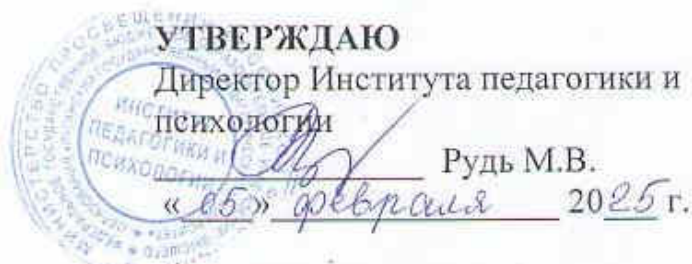 УТВЕРЖДАЮ
Директор Института педагогики и
психологии
Рудь М.В.
«05» февраля 2025 г.
ИНСТИТУТ
ПЕДАГОГИКИ И
ПСИХОЛОГИИ